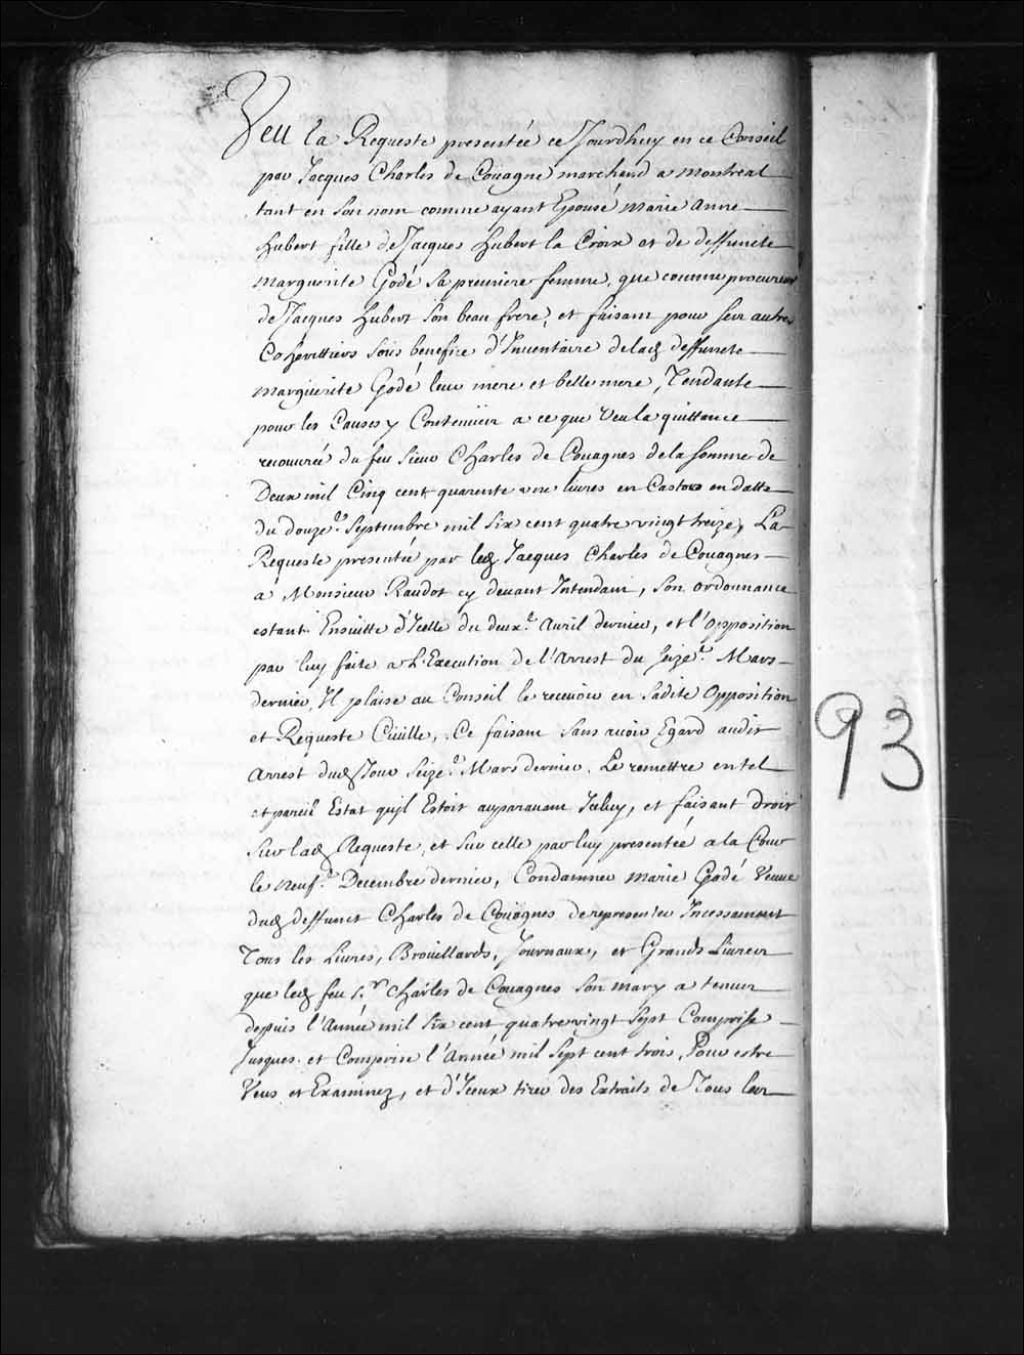 Veu la Requeste presentée ce Jourdhuy en ce Conseil
par Jacques Charles de Coüagne marchand a Montreal
tant en son nom comme ayant Epousé Marie Anne
hubert fille de Jacques hubert la Croix et de deffuncte
Marguerite Godé sa premiere femme, que comme procureur
de Jacques hubert son beau frere, et faisant pour ses autres
Coherittiers sous benefice d'Inventaire delad deffuncte
Marguerite Godé leur mere et belle mere, Tendante
pour les Causes y Contenües a ce que Veu la quittance
recouvrée du feu Sieur Charles de Couagnes de la somme de
Deux mil Cinq cent quarente une livres en Castor en datte
du douze.e Septembre mil six cent quatre vingt treize, La
Requeste presentée par led Jacques Charles de Couagnes
a Monsieur Raudot cy devant Intendant, son ordonnance
estant Ensuitte d'Icelle du deux.e Avril dernier, et l'opposition
par luy faite a L'Execution de l'Arrest du seize.e Mars
dernier, Il plaise au Conseil le recevoir en sadite opposition
et Requeste Civille, Ce faisant sans avoir Egard audit
Arrest dud Jour seize.e Mars dernier. Le remettre en tel
et pareil Estat quil Estoit auparavant Iceluy, et faisant droit
sur lad Requeste, et sur celle par luy presentée a la Cour
le neuf.e Decembre dernier, Condamner Marie Godé Veuve
dud deffunct Charles de Coüagnes de representer Incessament
Tous les Livres, Broüillards, Journaux, et Grands Livres
que led feu S.r Charles de Couagnes son mary a tenus
depuis l'Année mil six cent quatrevingt sept Comprise
Jusques et Comprise l'Année mil sept cent trois, Pour estre
Veus et Examinez, et d'Iceux tirer des Extraits de Tous les
93